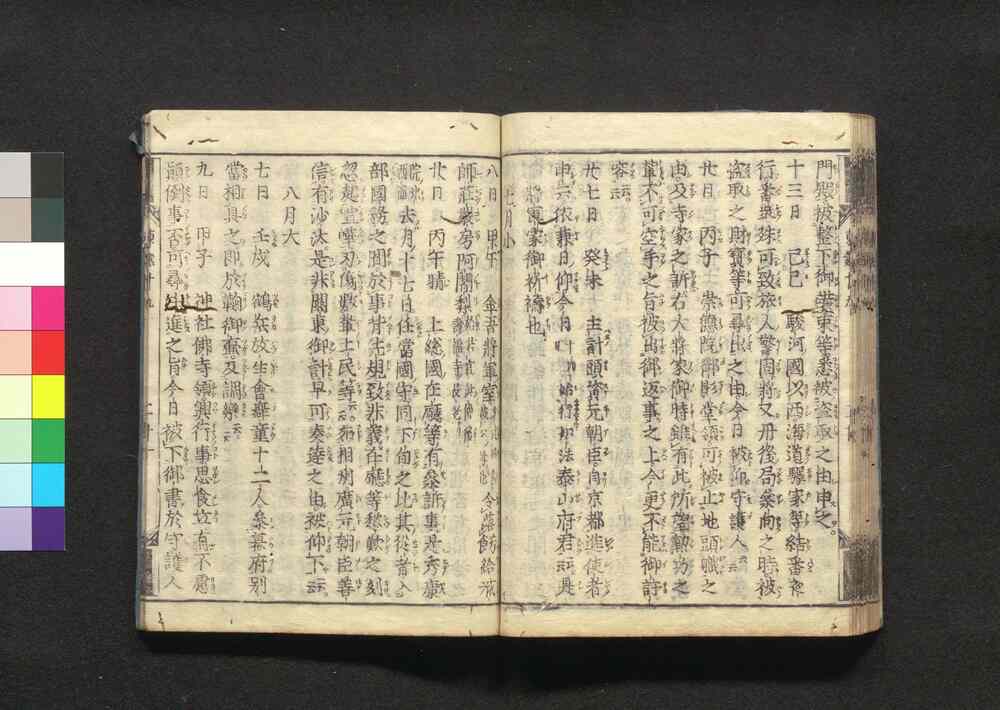 門與被整下御装束等悉被盗取之由申之。
十三日　己巳　駿河國以西海道驛家等結番夜
行番衆殊可致旅人警固將又丹後局參向之時被
盗取之財寳等可尋出之由今日被仰守護人云云
廿日　丙子　崇德院御影堂領可被止地頭職之
由及寺家之訴右大將家御時雖有此所望勲功之
輩不可空手之旨被出御返事之上今更不能御許
容云云
廿七日　癸未　主計頭資元朝臣自京都進使者
申云依兼日仰今日如法泰山府君云云是
將軍家御祈禱也
七月小
八日　甲午　金吾將軍室今落餝給
師莊嚴房阿闍梨
廿日　丙午晴　上総國在廳等有參訴事是秀康
去月十七日任當國守同下旬之比其從者入
部國務之間於事背先規致非義在廳等愁歎之刻
忽起喧嘩刃傷數輩土民等云云而相州廣元朝臣善
信有沙汰是非關東御計早可奏達之由被仰下云云
八月大
七日　壬戌　鶴岳放生會舞童十二人參幕府別
當相具之即於御壷及調樂云云
九日　甲子　神社佛寺領興行事思食立有不慮
顛倒事否可尋進之旨今日被下御書於守護人